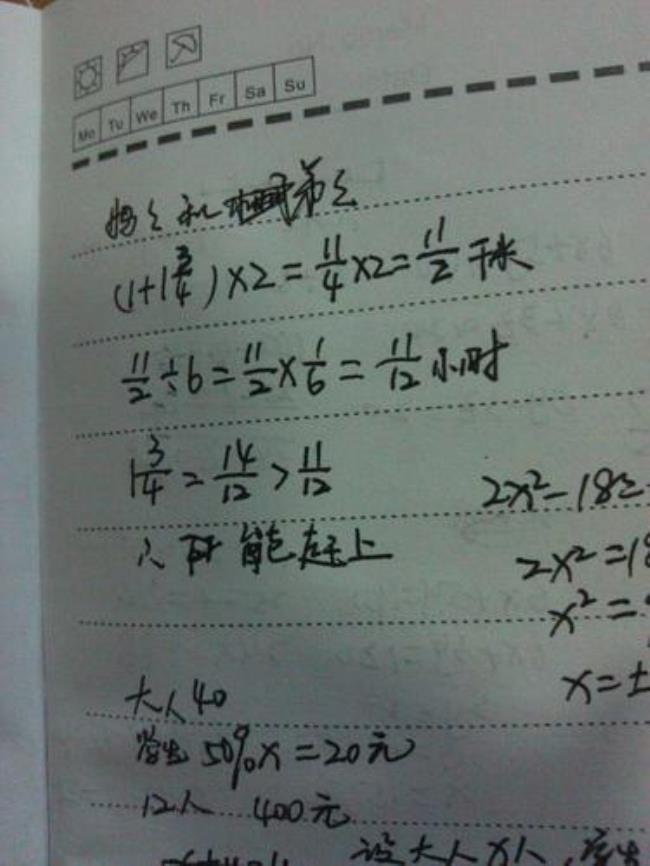 Mo Tu We Th Fr Sa Su
妈妈和弟弟
(1+1 3/4)×2=11/4×2=11/2 千米
11/2÷6=11/2×1/6=11/12 小时
1 3/4=14/12>11/12
2x²-18=
∴ 能赶上
2x²=18
x²=
x=±
大人40
学生50%×=20元
12人 400元
设大人x人